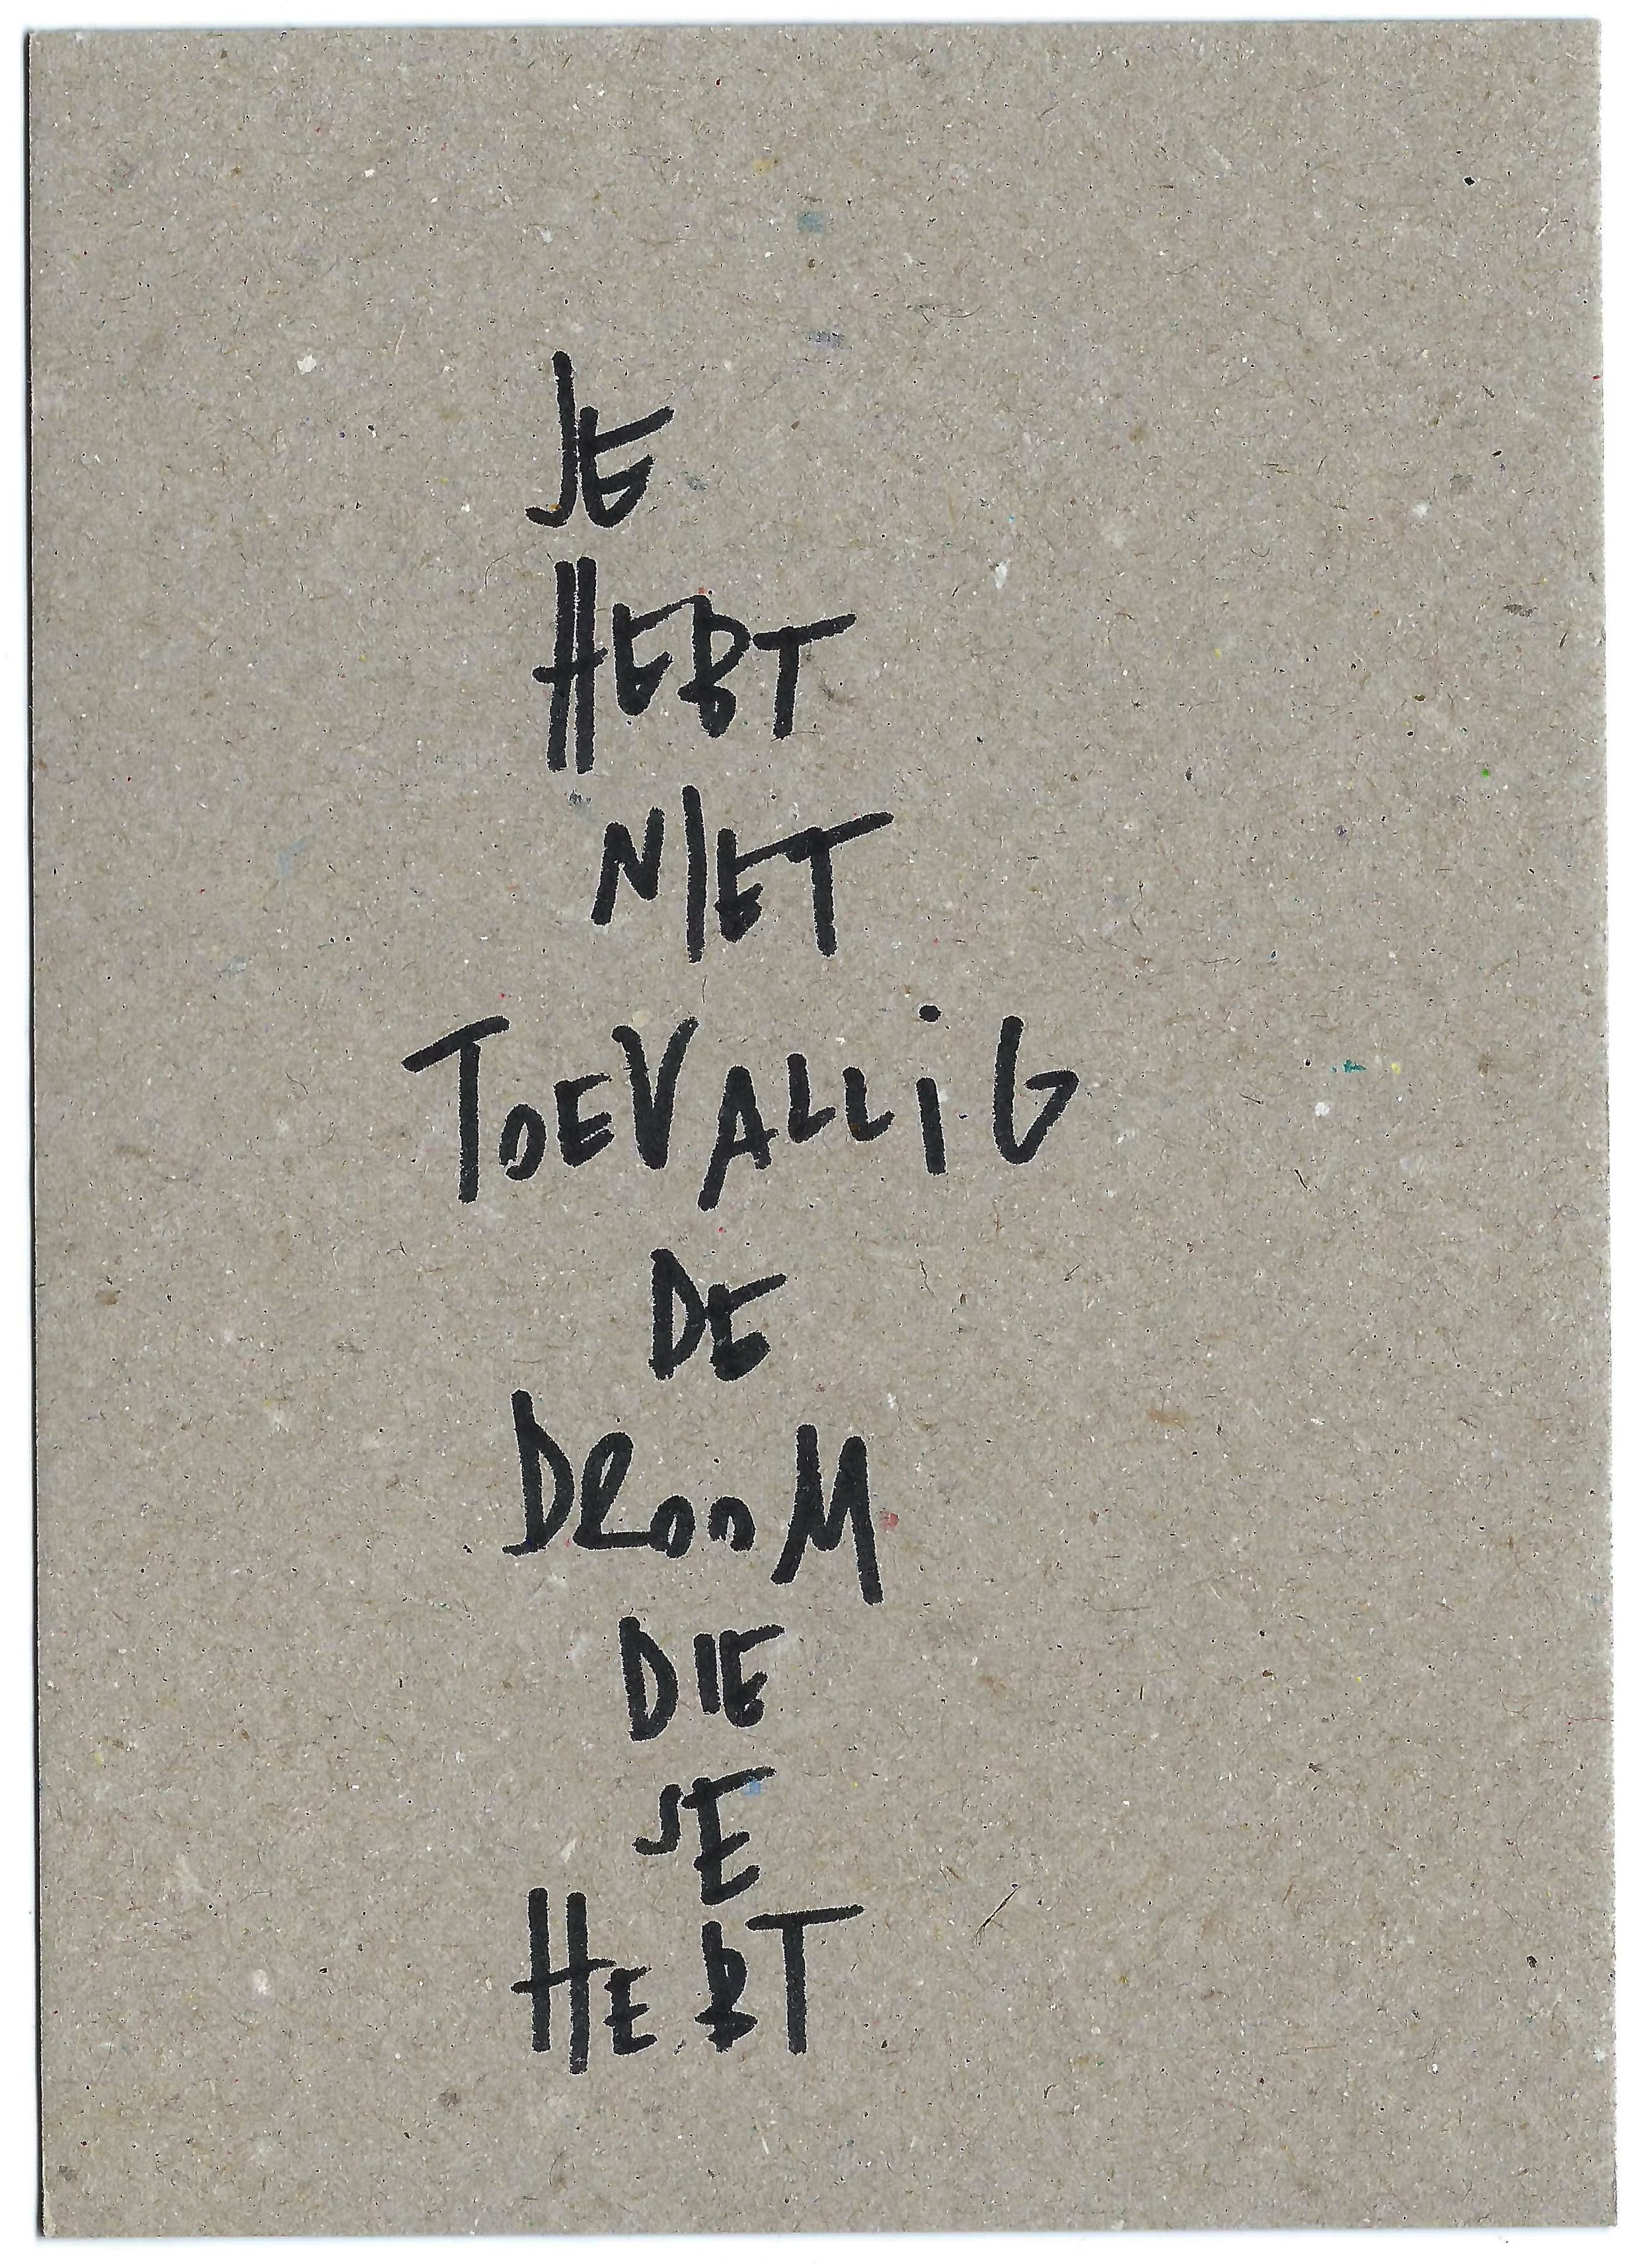 JE
HEBT
NIET
TOEVALLiG
DE
DROOM
DIE
JE
HEBT